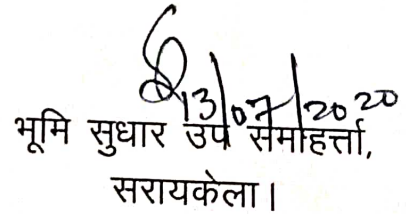 13/07/2020
भूमि सुधार उप समाहर्त्ता,
सरायकेला।